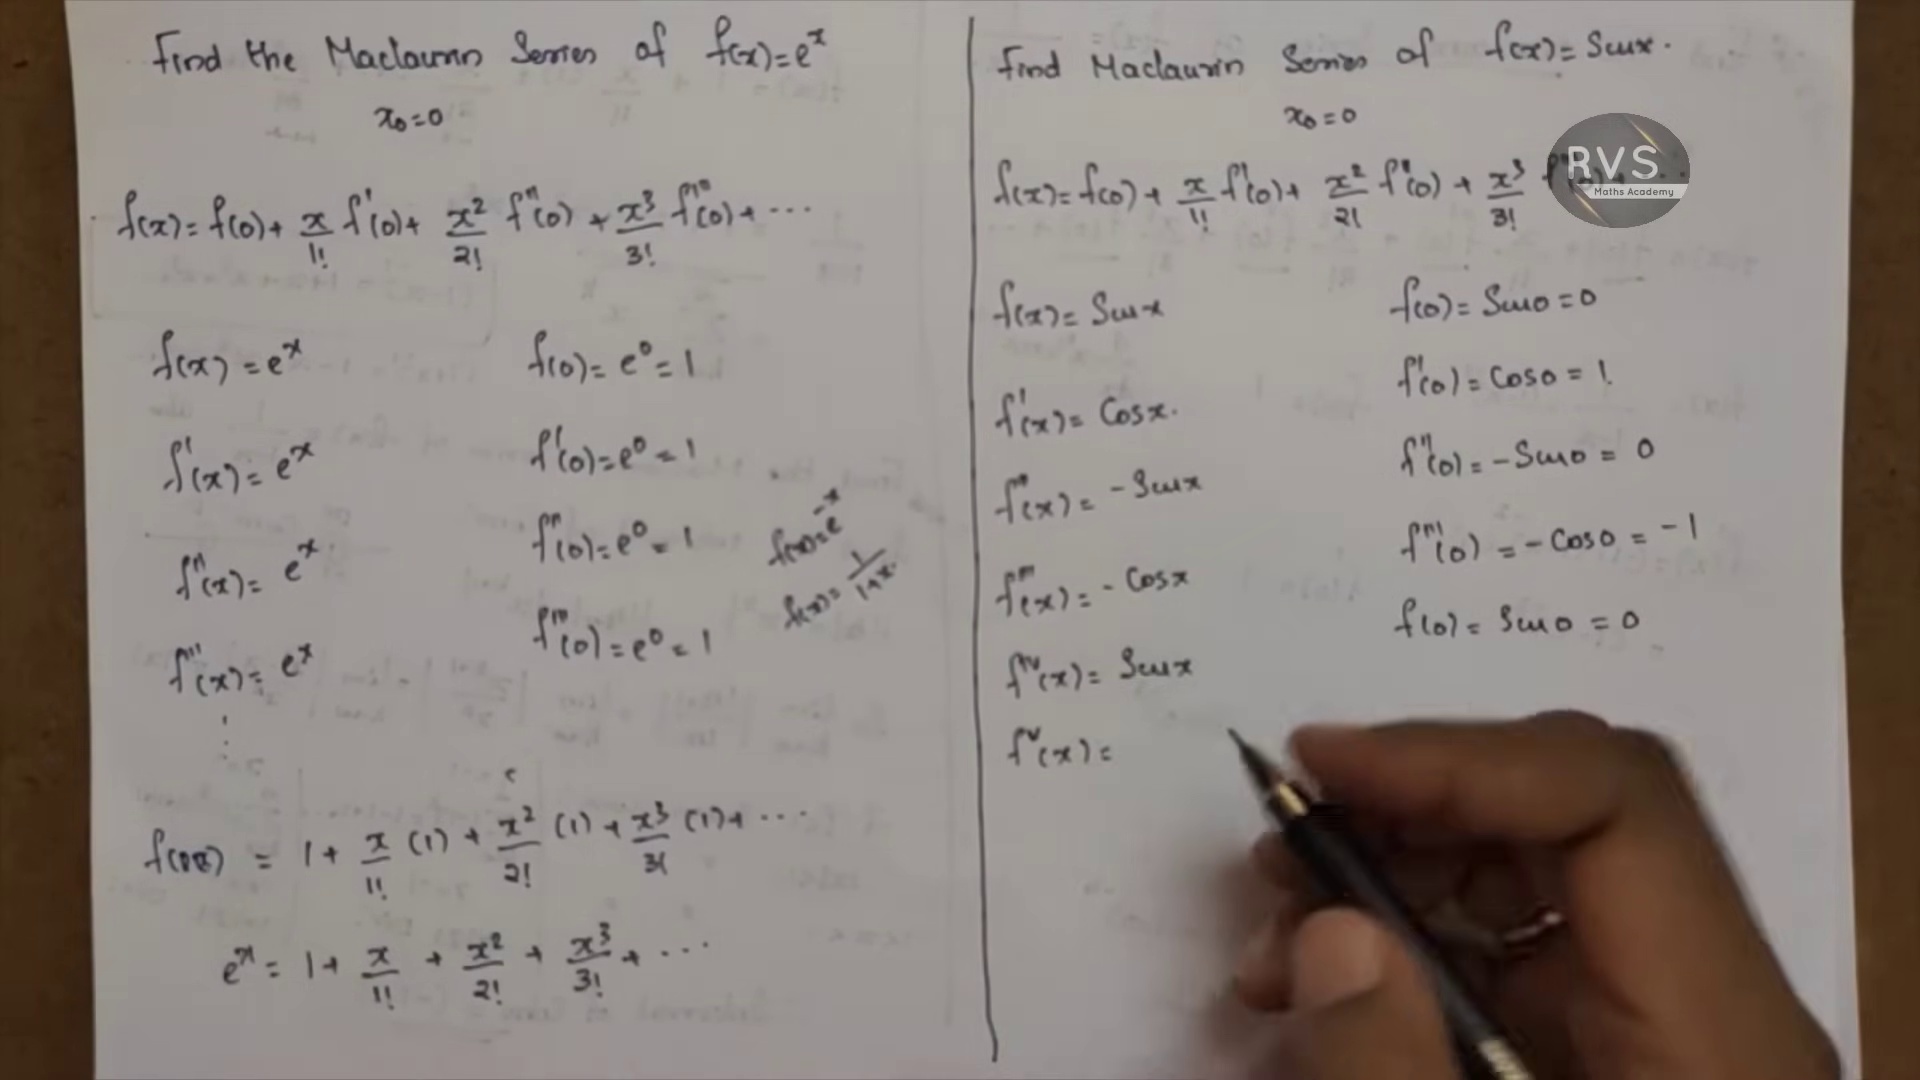 Find the Maclaurin Series of f(x)=eˣ
x₀=0
f(x)=f(0)+ x/1! f'(0)+ x²/2! f''(0) + x³/3! f'''(0)+ ...
f(x)=eˣ f(0)=e⁰=1
f'(x)=eˣ f'(0)=e⁰=1
f''(x)=eˣ f''(0)=e⁰=1
f'''(x)=eˣ f'''(0)=e⁰=1
f(x)=e⁻ˣ
f(x)=1/1+x.
= 1+ x/1! (1) + x²/2! (1) + x³/3! (1)+ ...
eˣ = 1+ x/1! + x²/2! + x³/3! + ...
Find Maclaurin Series of f(x)=Sinx.
x₀=0
f(x)=f(0)+ x/1! f'(0)+ x²/2! f''(0) + x³/3!
RVS
Maths Academy
f(x)=Sinx f(0)=Sin0=0
f'(x)=Cosx. f'(0)=Cos0=1.
f''(x)=-Sinx f''(0)=-Sin0=0
f'''(x)=-Cosx f'''(0)=-Cos0=-1
fⁱᵛ(x)=Sinx f(0)=Sin0=0
fᵛ(x)=